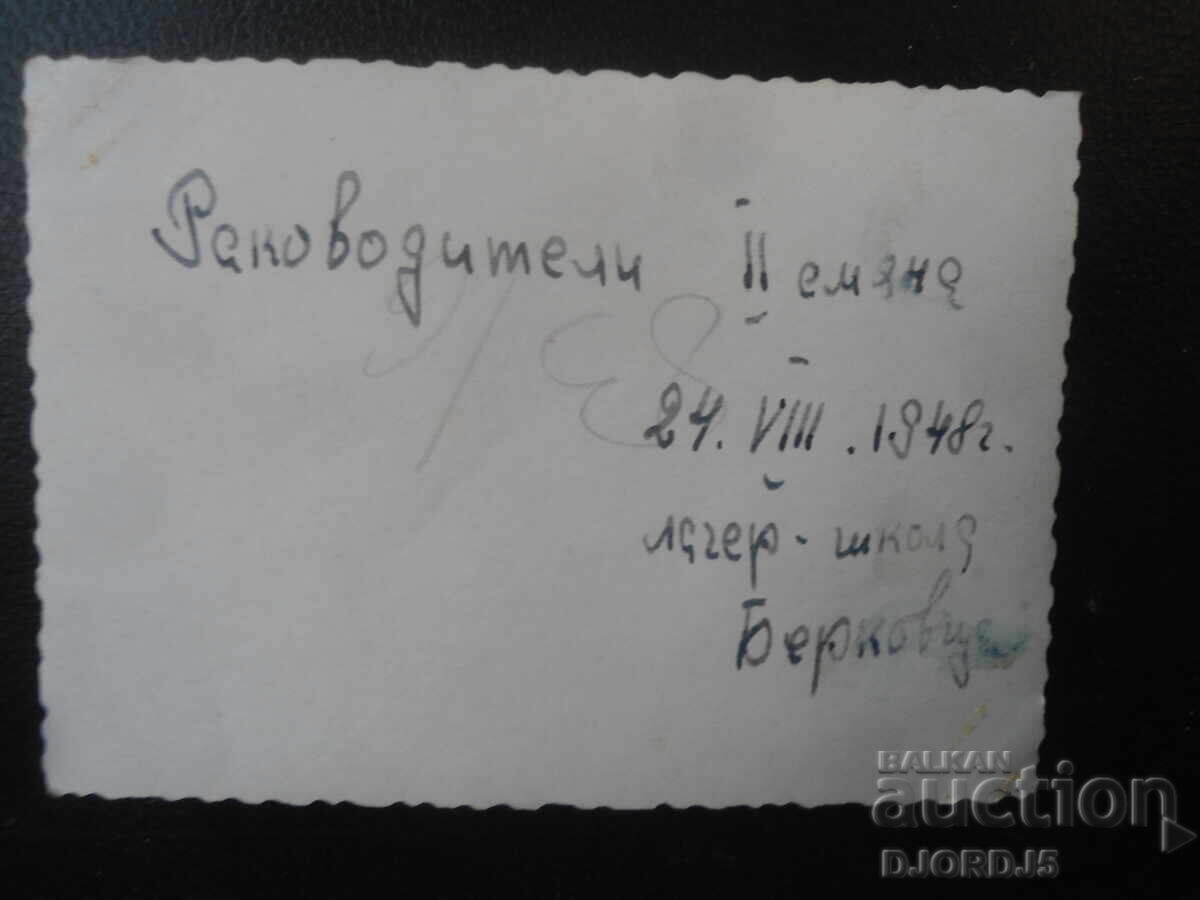 Раководители II смяна
24. VIII. 1948г.
лагер - школа
Берковица
BALKAN
auction
DJORDJ5